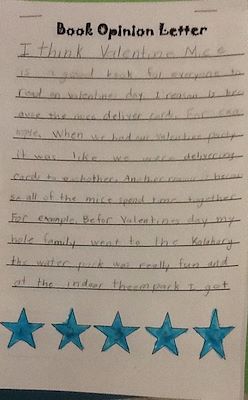 Book Opinion Letter
I think Valentine Mice
is a good book for everyone to
read on valentines day. 1 reason is bec
ause the mice deliver cards. For exa
mple. When we had our valentine party
it was like we were delivering
cards to eachother. Another reason is becau
se all of the mice spend time together
For example. Befor Valentines day my
hole family went to the Kalahary
the water park was really fun and
at the indoor theempark I got